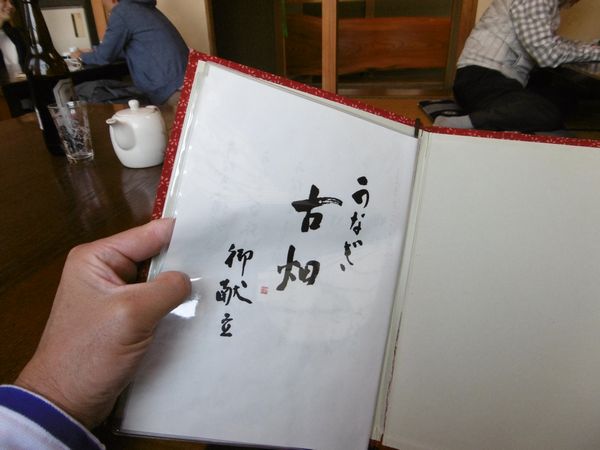 うなぎ
古畑
御献立